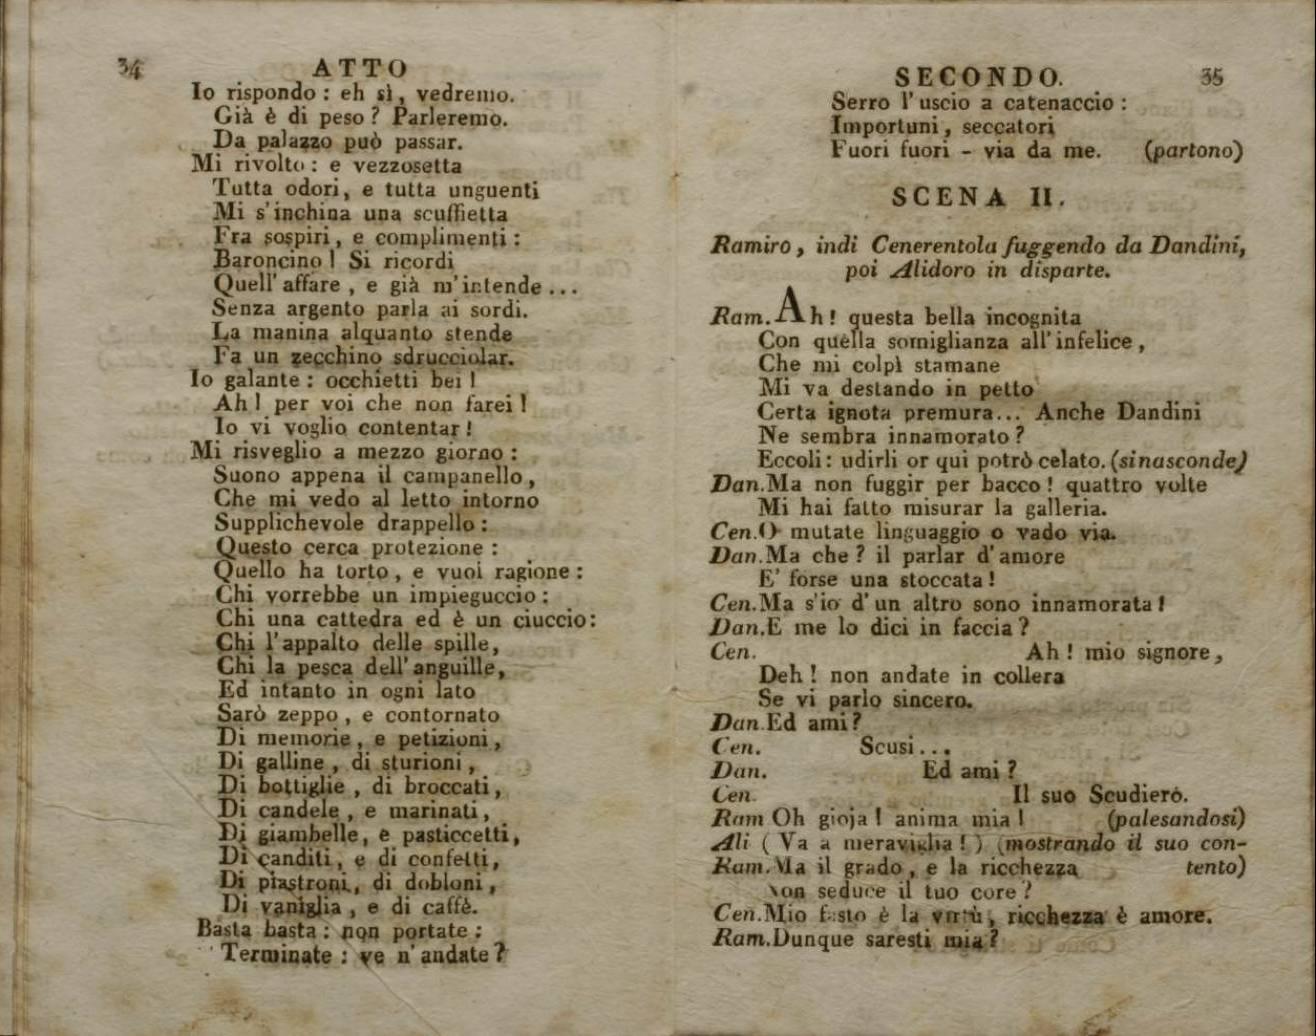 34 ATTO
Io rispondo : eh sì, vedremo.
Già è di peso ? Parleremo.
Da palazzo può passar.
Mi rivolto : e vezzosetta
Tutta odori, e tutta unguenti
Mi s'inchina una scuffietta
Fra sospiri, e complimenti :
Baroncino ! Si ricordi
Quell' affare, e già m'intende ...
Senza argento parla ai sordi.
La manina alquanto stende
Fa un zecchino sdrucciolar.
Io galante : occhietti bei !
Ah ! per voi che non farei !
Io vi voglio contentar !
Mi risveglio a mezzo giorno :
Suono appena il campanello,
Che mi vedo al letto intorno
Supplichevole drappello :
Questo cerca protezione :
Quello ha torto, e vuoi ragione :
Chi vorrebbe un impieguccio :
Chi una cattedra ed è un ciuccio :
Chi l'appalto delle spille,
Chi la pesca dell'anguille,
Ed intanto in ogni lato
Sarò zeppo, e contornato
Di memorie, e petizioni,
Di galline, di sturioni,
Di bottiglie, di broccati,
Di candele, e marinati,
Di giambelle, e pasticcetti,
Di canditi, e di confetti,
Di piastroni, di dobloni,
Di vaniglia, e di caffè.
Basta basta : non portate :
Terminate : ve n'andate ?
SECONDO. 35
Serro l'uscio a catenaccio :
Importuni, seccatori
Fuori fuori - via da me. (partono)
SCENA II.
Ramiro, indi Cenerentola fuggendo da Dandini,
poi Alidoro in disparte.
Ram. Ah ! questa bella incognita
Con quella somiglianza all'infelice,
Che mi colpì stamane
Mi va destando in petto
Certa ignota premura... Anche Dandini
Ne sembra innamorato ?
Eccoli : udirli or qui potrò celato. (sinasconde)
Dan. Ma non fuggir per bacco ! quattro volte
Mi hai fatto misurar la galleria.
Cen. O mutate linguaggio o vado via.
Dan. Ma che ? il parlar d'amore
E' forse una stoccata !
Cen. Ma s'io d'un altro sono innamorata !
Dan. E me lo dici in faccia ?
Cen. Ah ! mio signore,
Deh ! non andate in collera
Se vi parlo sincero.
Dan. Ed ami ?
Cen. Scusi...
Dan. Ed ami ?
Cen. Il suo Scudiero.
Ram Oh gioja ! anima mia ! (palesandosi)
Ali ( Va a meraviglia ! ) (mostrando il suo con-
Ram. Ma il grado, e la ricchezza tento)
Non seduce il tuo core ?
Cen. Mio fasto è la virtù, ricchezza è amore.
Ram. Dunque saresti mia ?